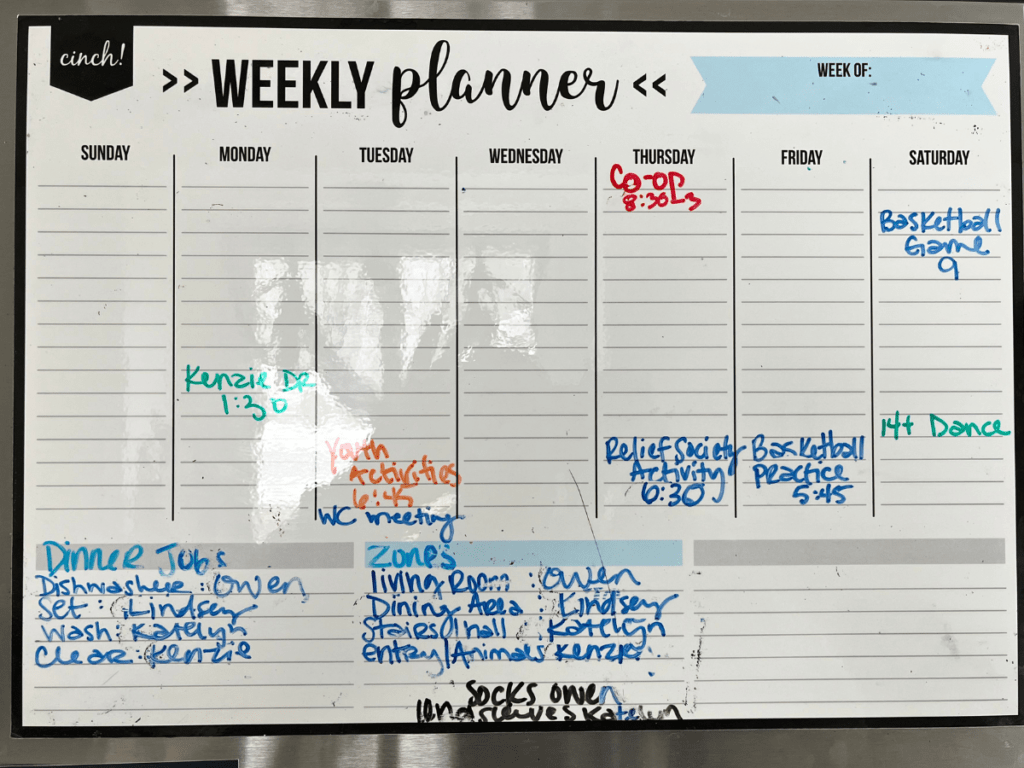 cinch!
>> WEEKLY planner <<
WEEK OF:
SUNDAY
MONDAY
TUESDAY
WEDNESDAY
THURSDAY
FRIDAY
SATURDAY
Kenzie DR
1:30
Youth
Activities
6:45
WC meeting
Co-op
8:30-3
Relief Society
Activity
6:30
Basketball
Practice
5:45
Basketball
Game
9
14+ Dance
Dinner Jobs
Dishwasher : Owen
Set : Lindsey
Wash : Katelyn
Clear : Kenzie
Zones
Living Room : Owen
Dining Area : Lindsey
Stairs/hall : Katelyn
Entry/Animals Kenzie
Socks Owen
Katelyn